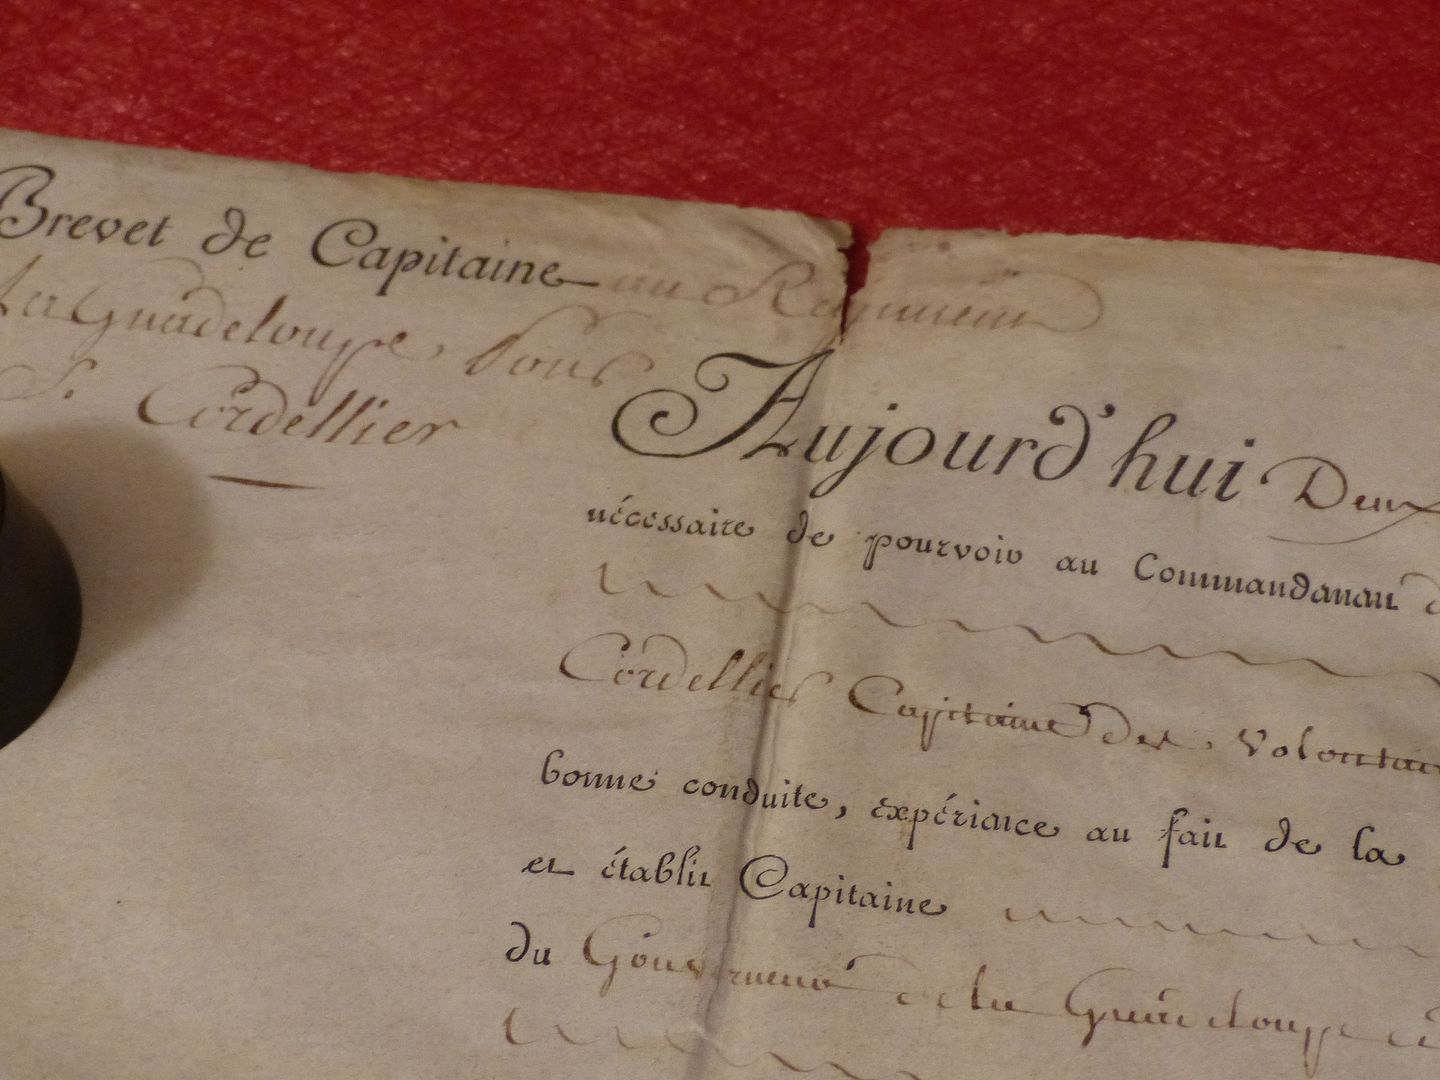 Brevet de Capitaine au Regiment
la Guadeloupe Pour
S. Cordellier
Aujourd'hui Deux
nécessaire de pourvoir au Commandanau
Cordellier Capitaine des Volontai
bonne conduite, expériance au fait de la
et établir Capitaine
du Gouverneur de la Guadeloupe